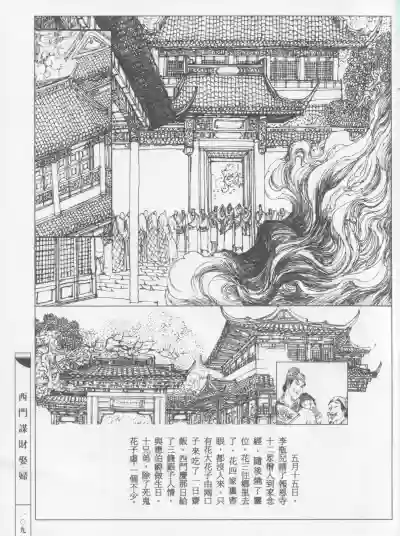 五月十五日，
李瓶兒請了報恩寺
十二眾僧人到家念
經，隨後燒了靈
位。花三往鄉里去
了，花四家裏害
眼，都沒人來，只
有花大花子由兩口
子來吃了一日齋
飯。西門慶那日給
了三錢銀子人情，
與應伯爵做生日。
十兄弟，除了死鬼
花子虛，一個不少。
西門謀財娶婦
一〇九